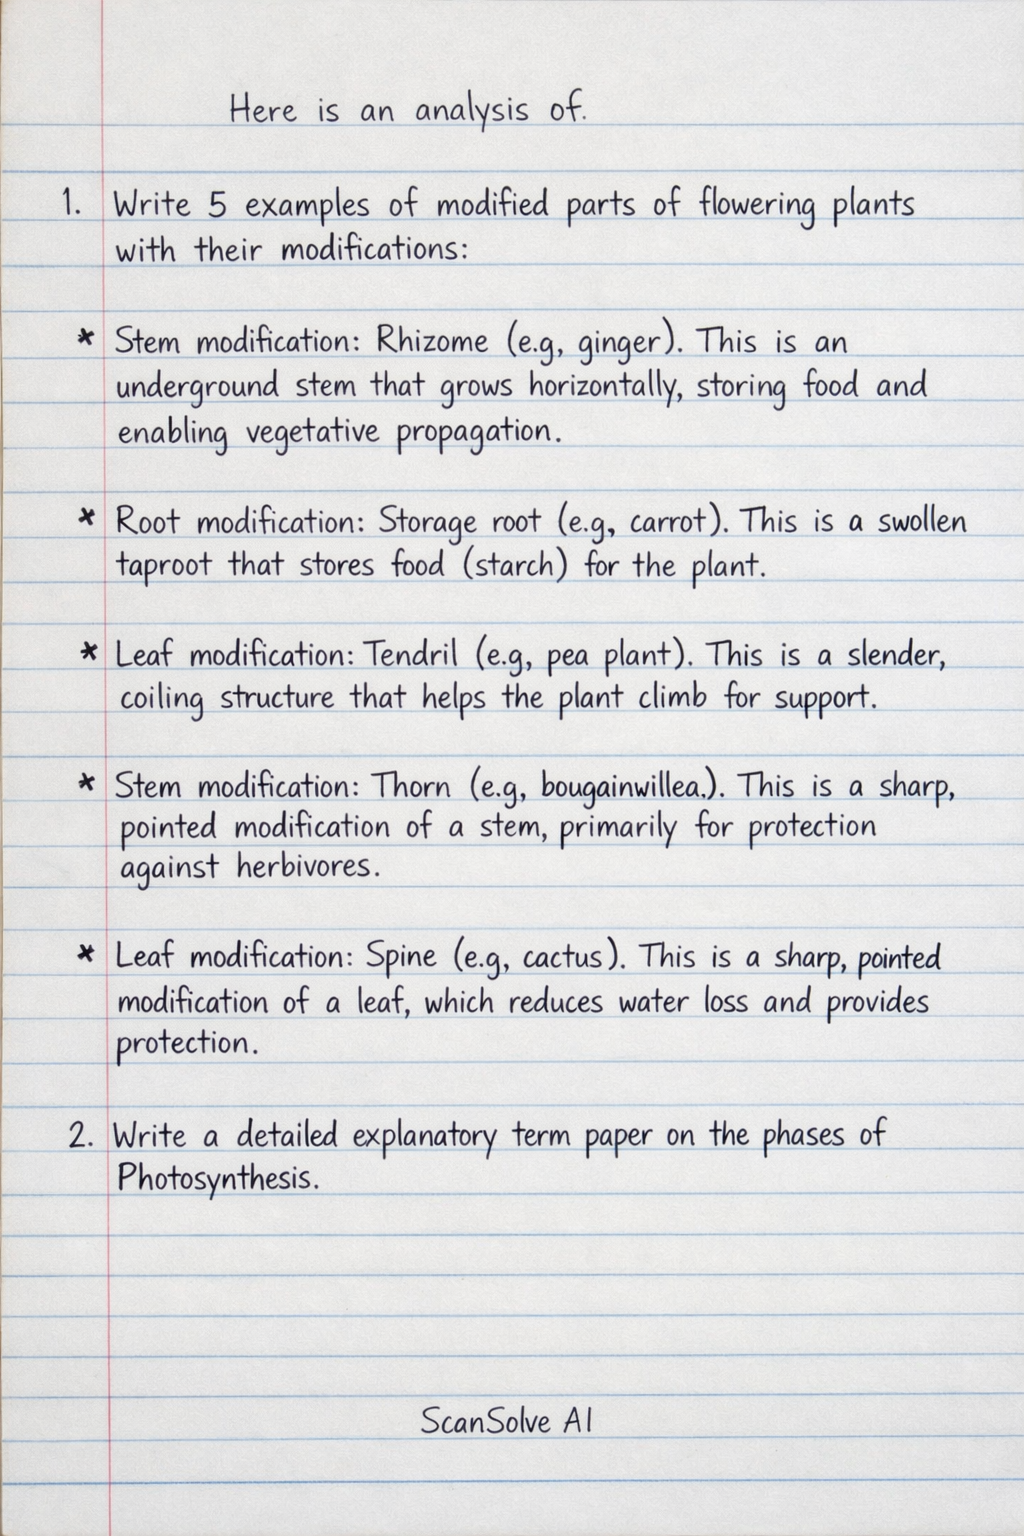 Here is an analysis of.
1. Write 5 examples of modified parts of flowering plants
with their modifications:
* Stem modification: Rhizome (e.g, ginger). This is an
underground stem that grows horizontally, storing food and
enabling vegetative propagation.
* Root modification: Storage root (e.g, carrot). This is a swollen
taproot that stores food (starch) for the plant.
* Leaf modification: Tendril (e.g, pea plant). This is a slender,
coiling structure that helps the plant climb for support.
* Stem modification: Thorn (e.g, bougainwillea.). This is a sharp,
pointed modification of a stem, primarily for protection
against herbivores.
* Leaf modification: Spine (e.g, cactus). This is a sharp, pointed
modification of a leaf, which reduces water loss and provides
protection.
2. Write a detailed explanatory term paper on the phases of
Photosynthesis.
ScanSolve AI